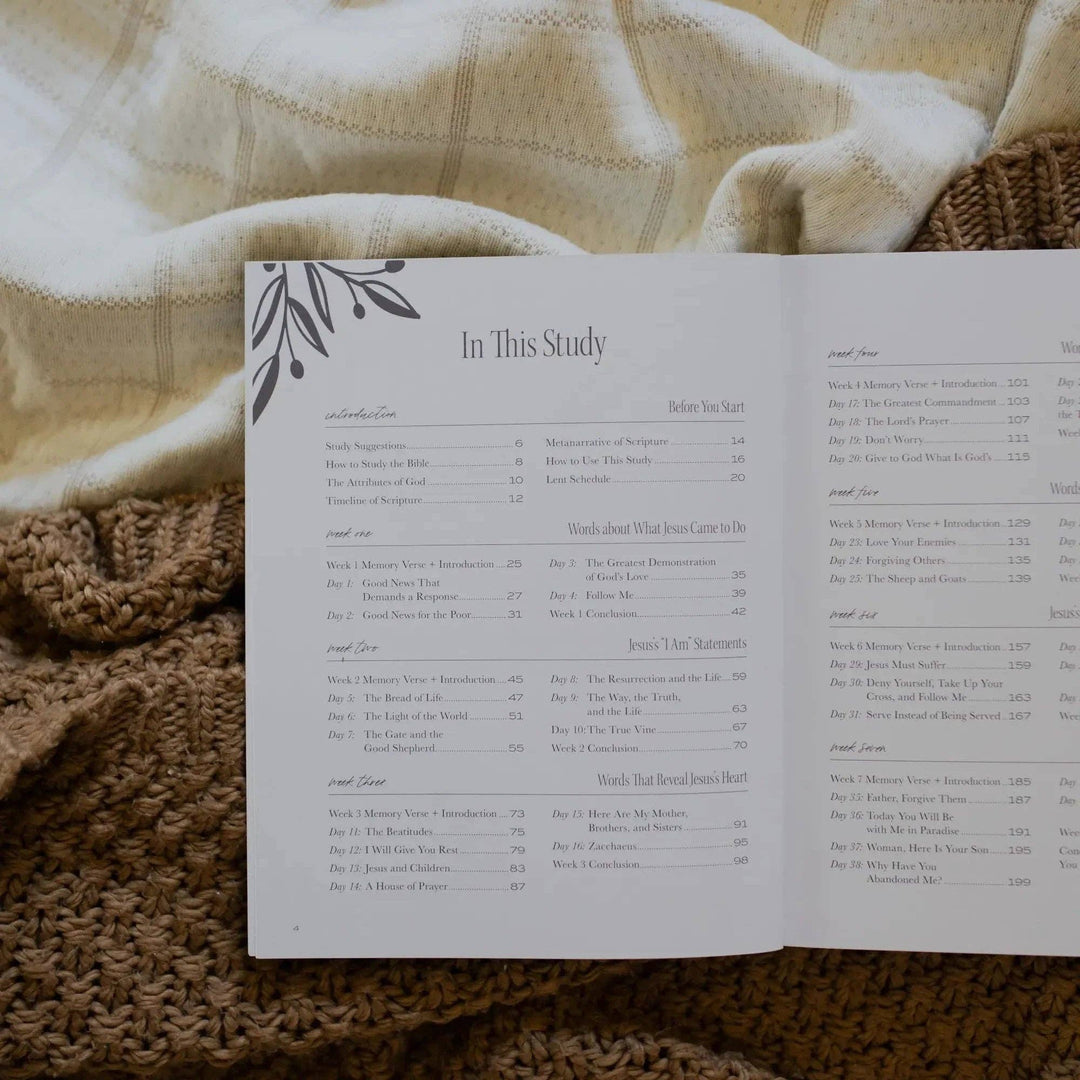 In This Study
introduction
Before You Start
Study Suggestions 6
How to Study the Bible 8
The Attributes of God 10
Timeline of Scripture 12
Metanarrative of Scripture 14
How to Use This Study 16
Lent Schedule 20
week one
Words about What Jesus Came to Do
Week 1 Memory Verse + Introduction 25
Day 1: Good News That
Demands a Response 27
Day 2: Good News for the Poor 31
Day 3: The Greatest Demonstration
of God's Love 35
Day 4: Follow Me 39
Week 1 Conclusion 42
week two
Jesus's "I Am" Statements
Week 2 Memory Verse + Introduction 45
Day 5: The Bread of Life 47
Day 6: The Light of the World 51
Day 7: The Gate and the
Good Shepherd 55
Day 8: The Resurrection and the Life 59
Day 9: The Way, the Truth,
and the Life 63
Day 10: The True Vine 67
Week 2 Conclusion 70
week three
Words That Reveal Jesus's Heart
Week 3 Memory Verse + Introduction 73
Day 11: The Beatitudes 75
Day 12: I Will Give You Rest 79
Day 13: Jesus and Children 83
Day 14: A House of Prayer 87
Day 15: Here Are My Mother,
Brothers, and Sisters 91
Day 16: Zacchaeus 95
Week 3 Conclusion 98
4
week four
Week 4 Memory Verse + Introduction 101
Day 17: The Greatest Commandment 103
Day 18: The Lord's Prayer 107
Day 19: Don't Worry 111
Day 20: Give to God What Is God's 115
week five
Words
Week 5 Memory Verse + Introduction 129
Day 23: Love Your Enemies 131
Day 24: Forgiving Others 135
Day 25: The Sheep and Goats 139
week six
Jesus's
Week 6 Memory Verse + Introduction 157
Day 29: Jesus Must Suffer 159
Day 30: Deny Yourself, Take Up Your
Cross, and Follow Me 163
Day 31: Serve Instead of Being Served 167
week seven
Week 7 Memory Verse + Introduction 185
Day 35: Father, Forgive Them 187
Day 36: Today You Will Be
with Me in Paradise 191
Day 37: Woman, Here Is Your Son 195
Day 38: Why Have You
Abandoned Me? 199
Day
Day
Day
Day
Day
Day
Day
You